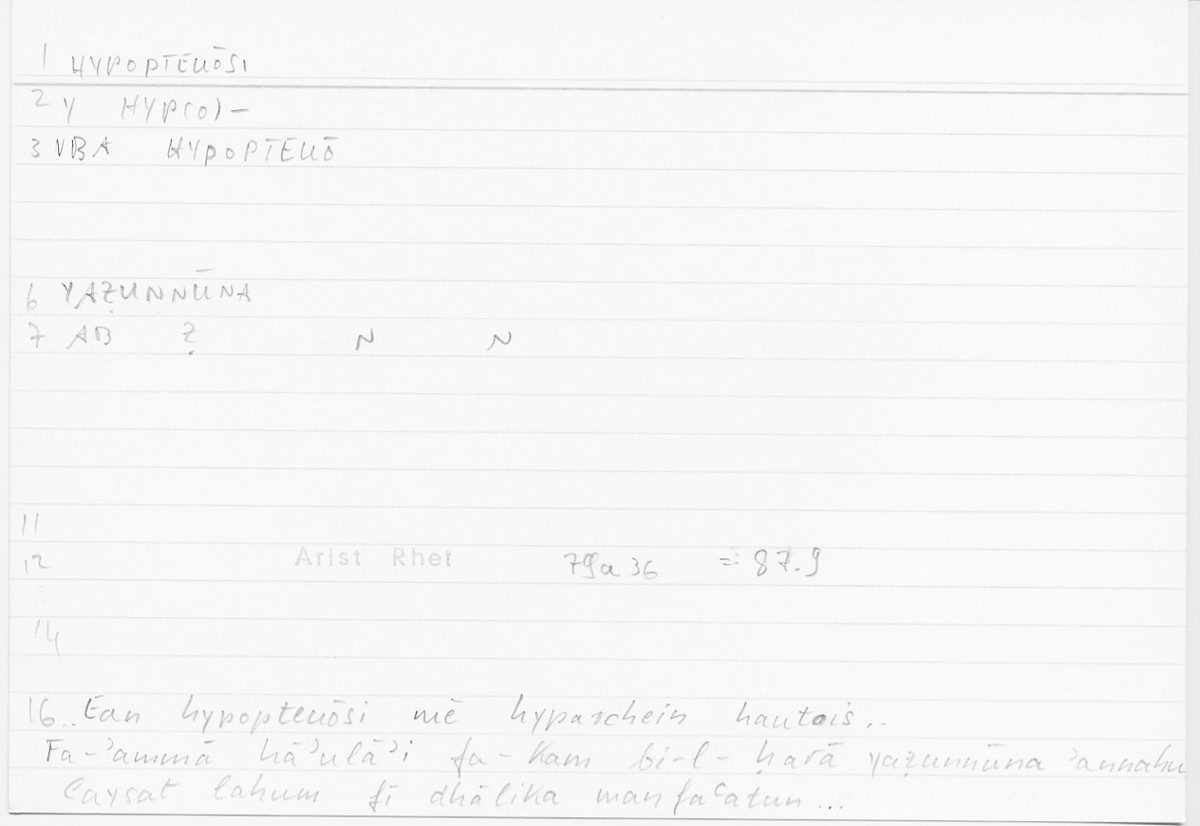 1 HYPOPTEUŌSI
2 Y HYP(O)-
3 VBA HYPOPTEUŌ
6 YAẒUNNŪNA
7 AB Ẓ N N
11
12 Arist Rhet 79a 36 = 87.9
14
16.. Ean hypopteuōsi mē hyparchein hautois..
Fa-ʾammā hāʾulāʾi fa-kam bi-l-ḥarā yaẓunnūna ʾannahu
laysat lahum fī dhālika manfaʿatun...